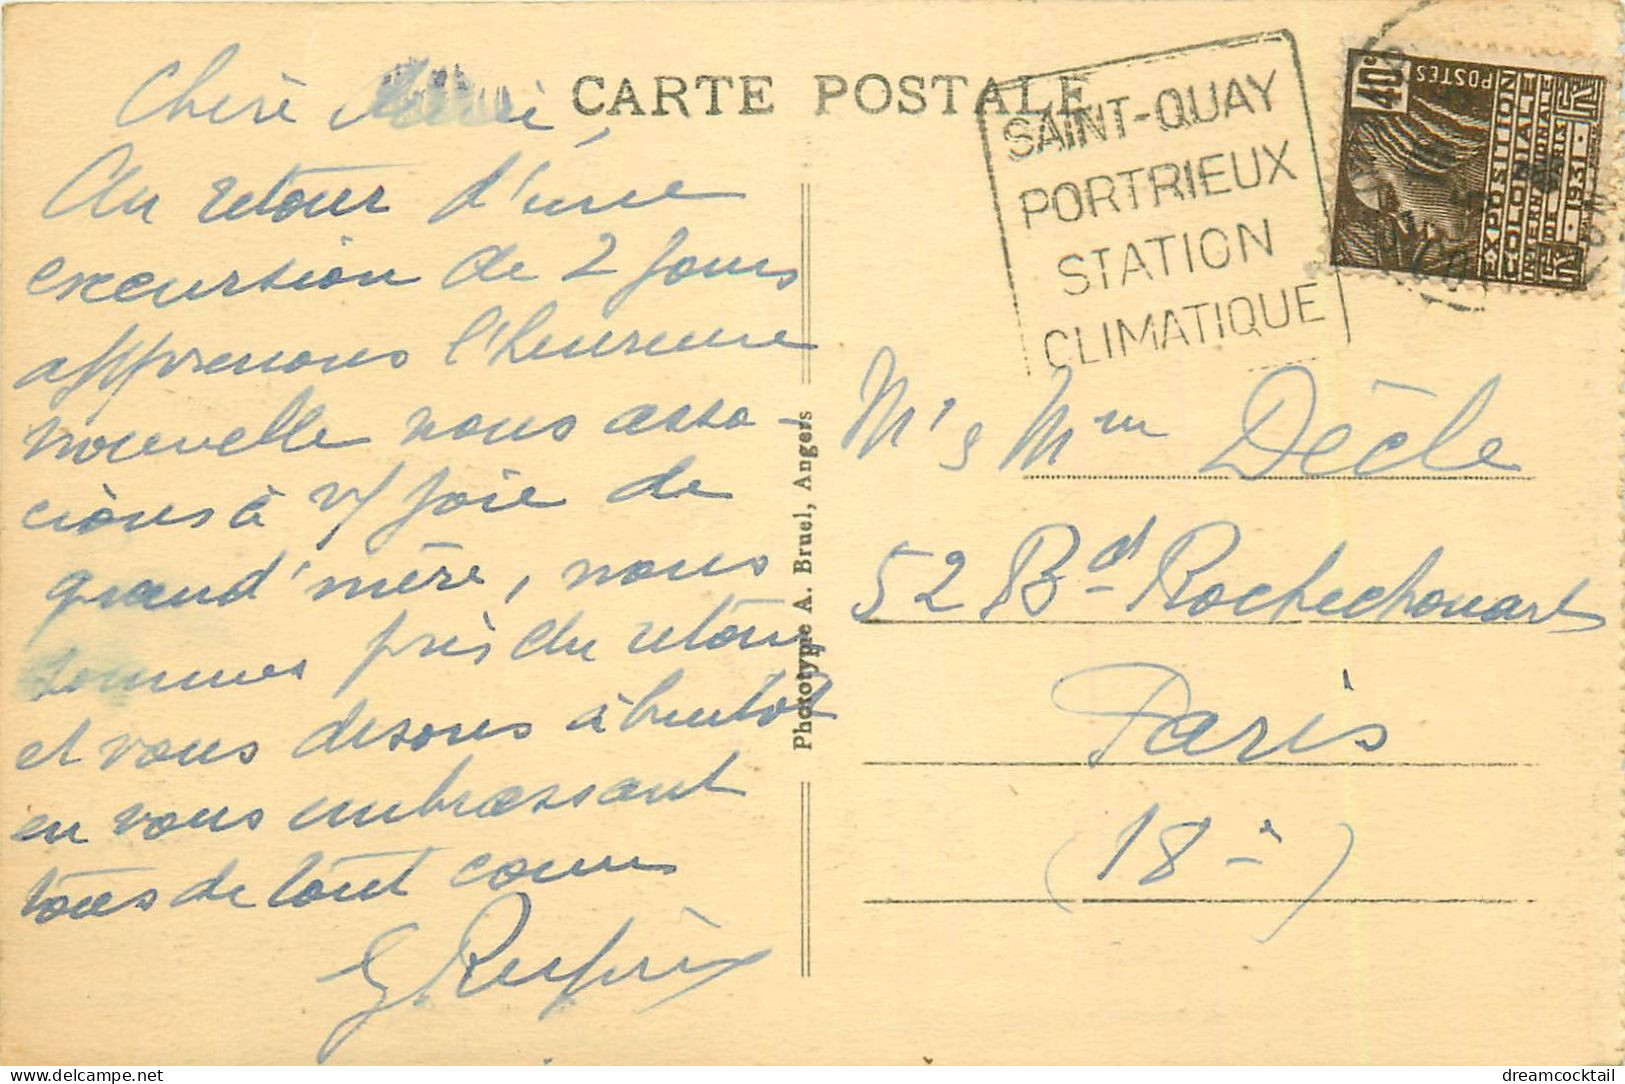 CARTE POSTALE
Chère
Au retour d'une
excursion de 2 jours
apprenons l'heureuse
nouvelle nous asso-
cions à v/ joie de
grand'mère, nous
sommes près du retour
et vous disons à bientot
en vous embrassant
tous de tout coeur
Phototype A. Bruel, Angers
SAINT-QUAY
PORTRIEUX
STATION
CLIMATIQUE
40c
POSTES
EXPOSITION
COLONIALE
INTERNATIONALE
DE PARIS
1931
Mr & Mme Dècle
52 Bd Rochechouart
Paris
(18è)
www.delcampe.net
dreamcocktail